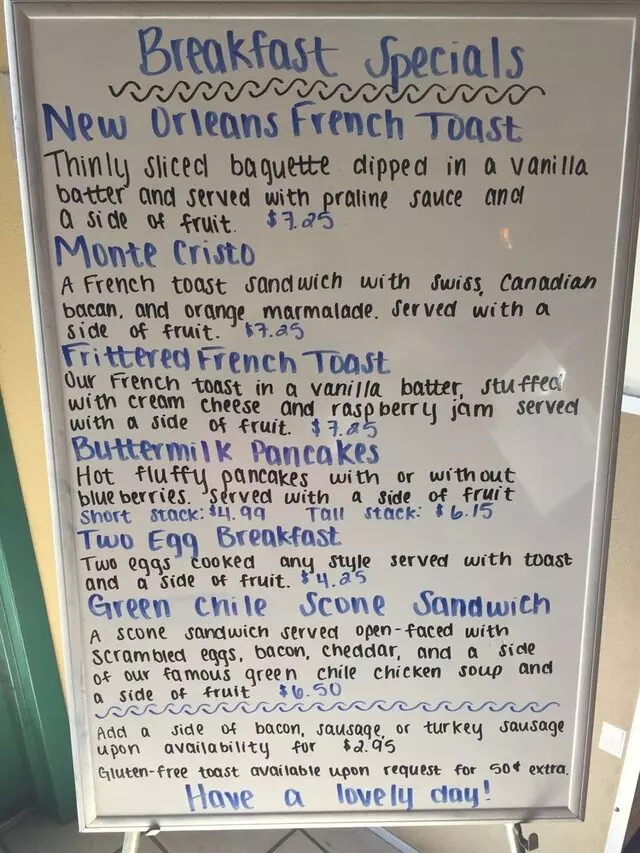 Breakfast Specials
New Orleans French Toast
Thinly sliced baguette dipped in a vanilla
batter and served with praline sauce and
a side of fruit. $7.25
Monte Cristo
A French toast sandwich with swiss, Canadian
bacan, and orange marmalade. Served with a
side of fruit. $7.25
Frittered French Toast
Our French toast in a vanilla batter, stuffed
with cream cheese and raspberry jam served
with a side of fruit. $7.25
Buttermilk Pancakes
Hot fluffy pancakes with or without
blueberries. Served with a side of fruit
Short stack: $4.99 Tall stack: $6.15
Two Egg Breakfast
Two eggs cooked any style served with toast
and a side of fruit. $4.25
Green Chile Scone Sandwich
A scone sandwich served open-faced with
scrambled eggs, bacon, cheddar, and a side
of our famous green chile chicken soup and
a side of fruit $6.50
Add a side of bacon, sausage, or turkey sausage
upon availability for $2.95
Gluten-free toast available upon request for 50¢ extra.
Have a lovely day!